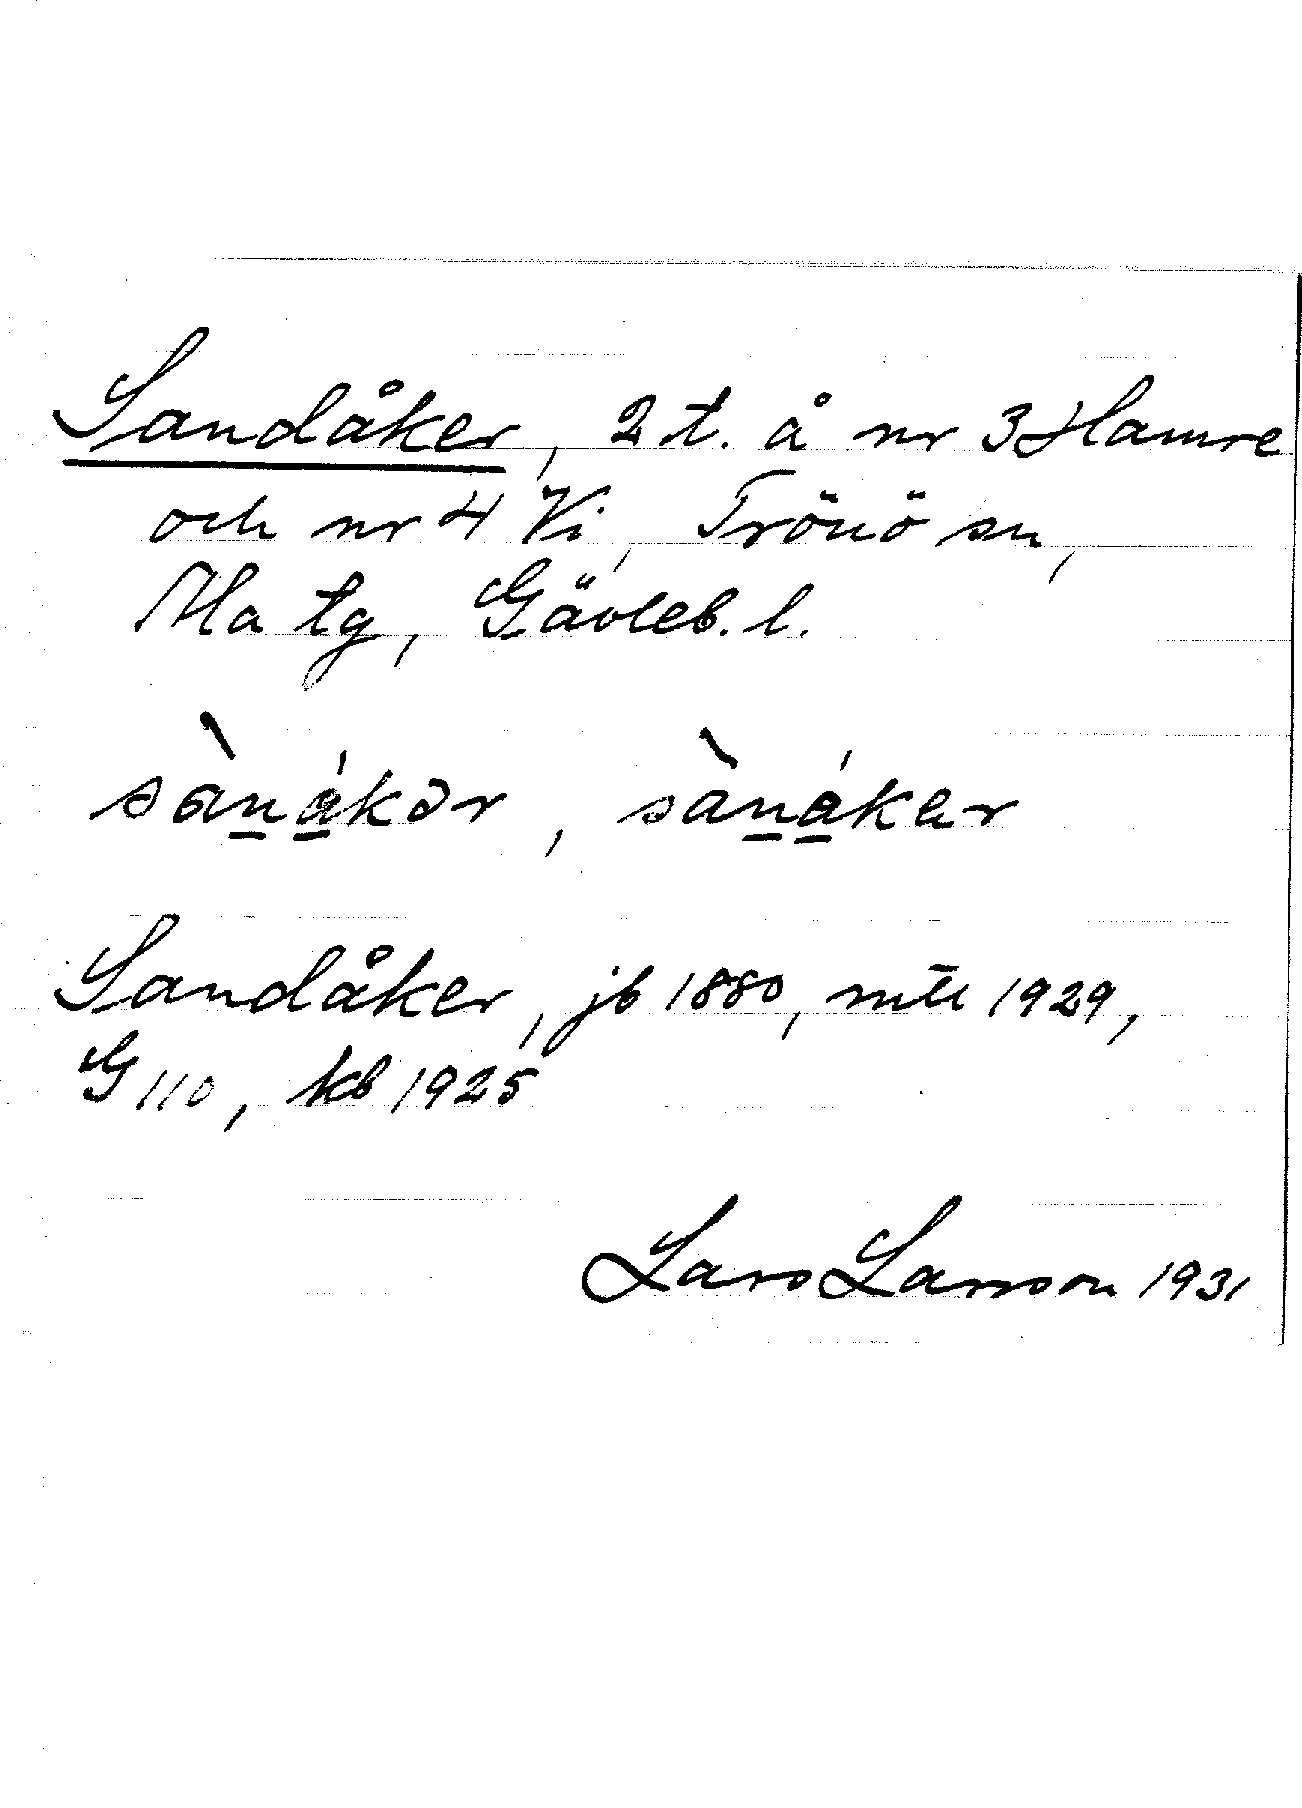 Sandåker, 2 t. å nr 3 Hamre
och nr 4 Vi, Trönö sn,
Ala tg, Gävleb. l.
sànákər, sànákar
Sandåker, jb 1880, mtl 1929,
G 110, kb 1925
Lars Larsson 1931